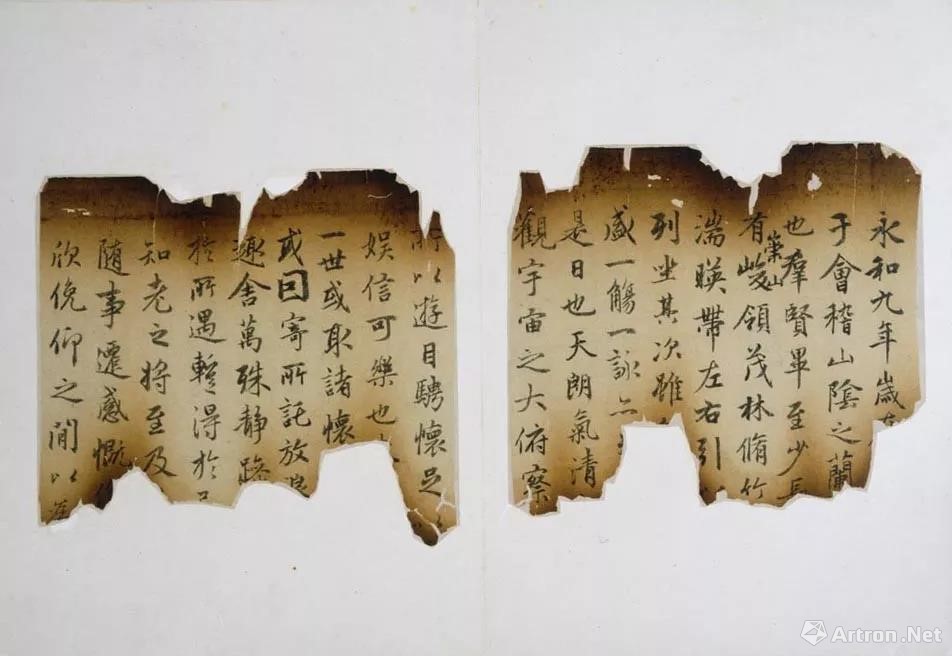 永和九年歲在
于會稽山陰之蘭
也羣賢畢至少長
有崇山峻領茂林脩竹
湍暎帶左右引以
列坐其次雖
盛一觴一詠亦
是日也天朗氣清
觀宇宙之大俯察
所以遊目騁懷足以
娛信可樂也
一世或取諸懷
或因寄所託放浪
趣舍萬殊靜躁
於所遇蹔得於己
知老之將至及
隨事遷感慨係
欣俛仰之閒以為
Artron.Net